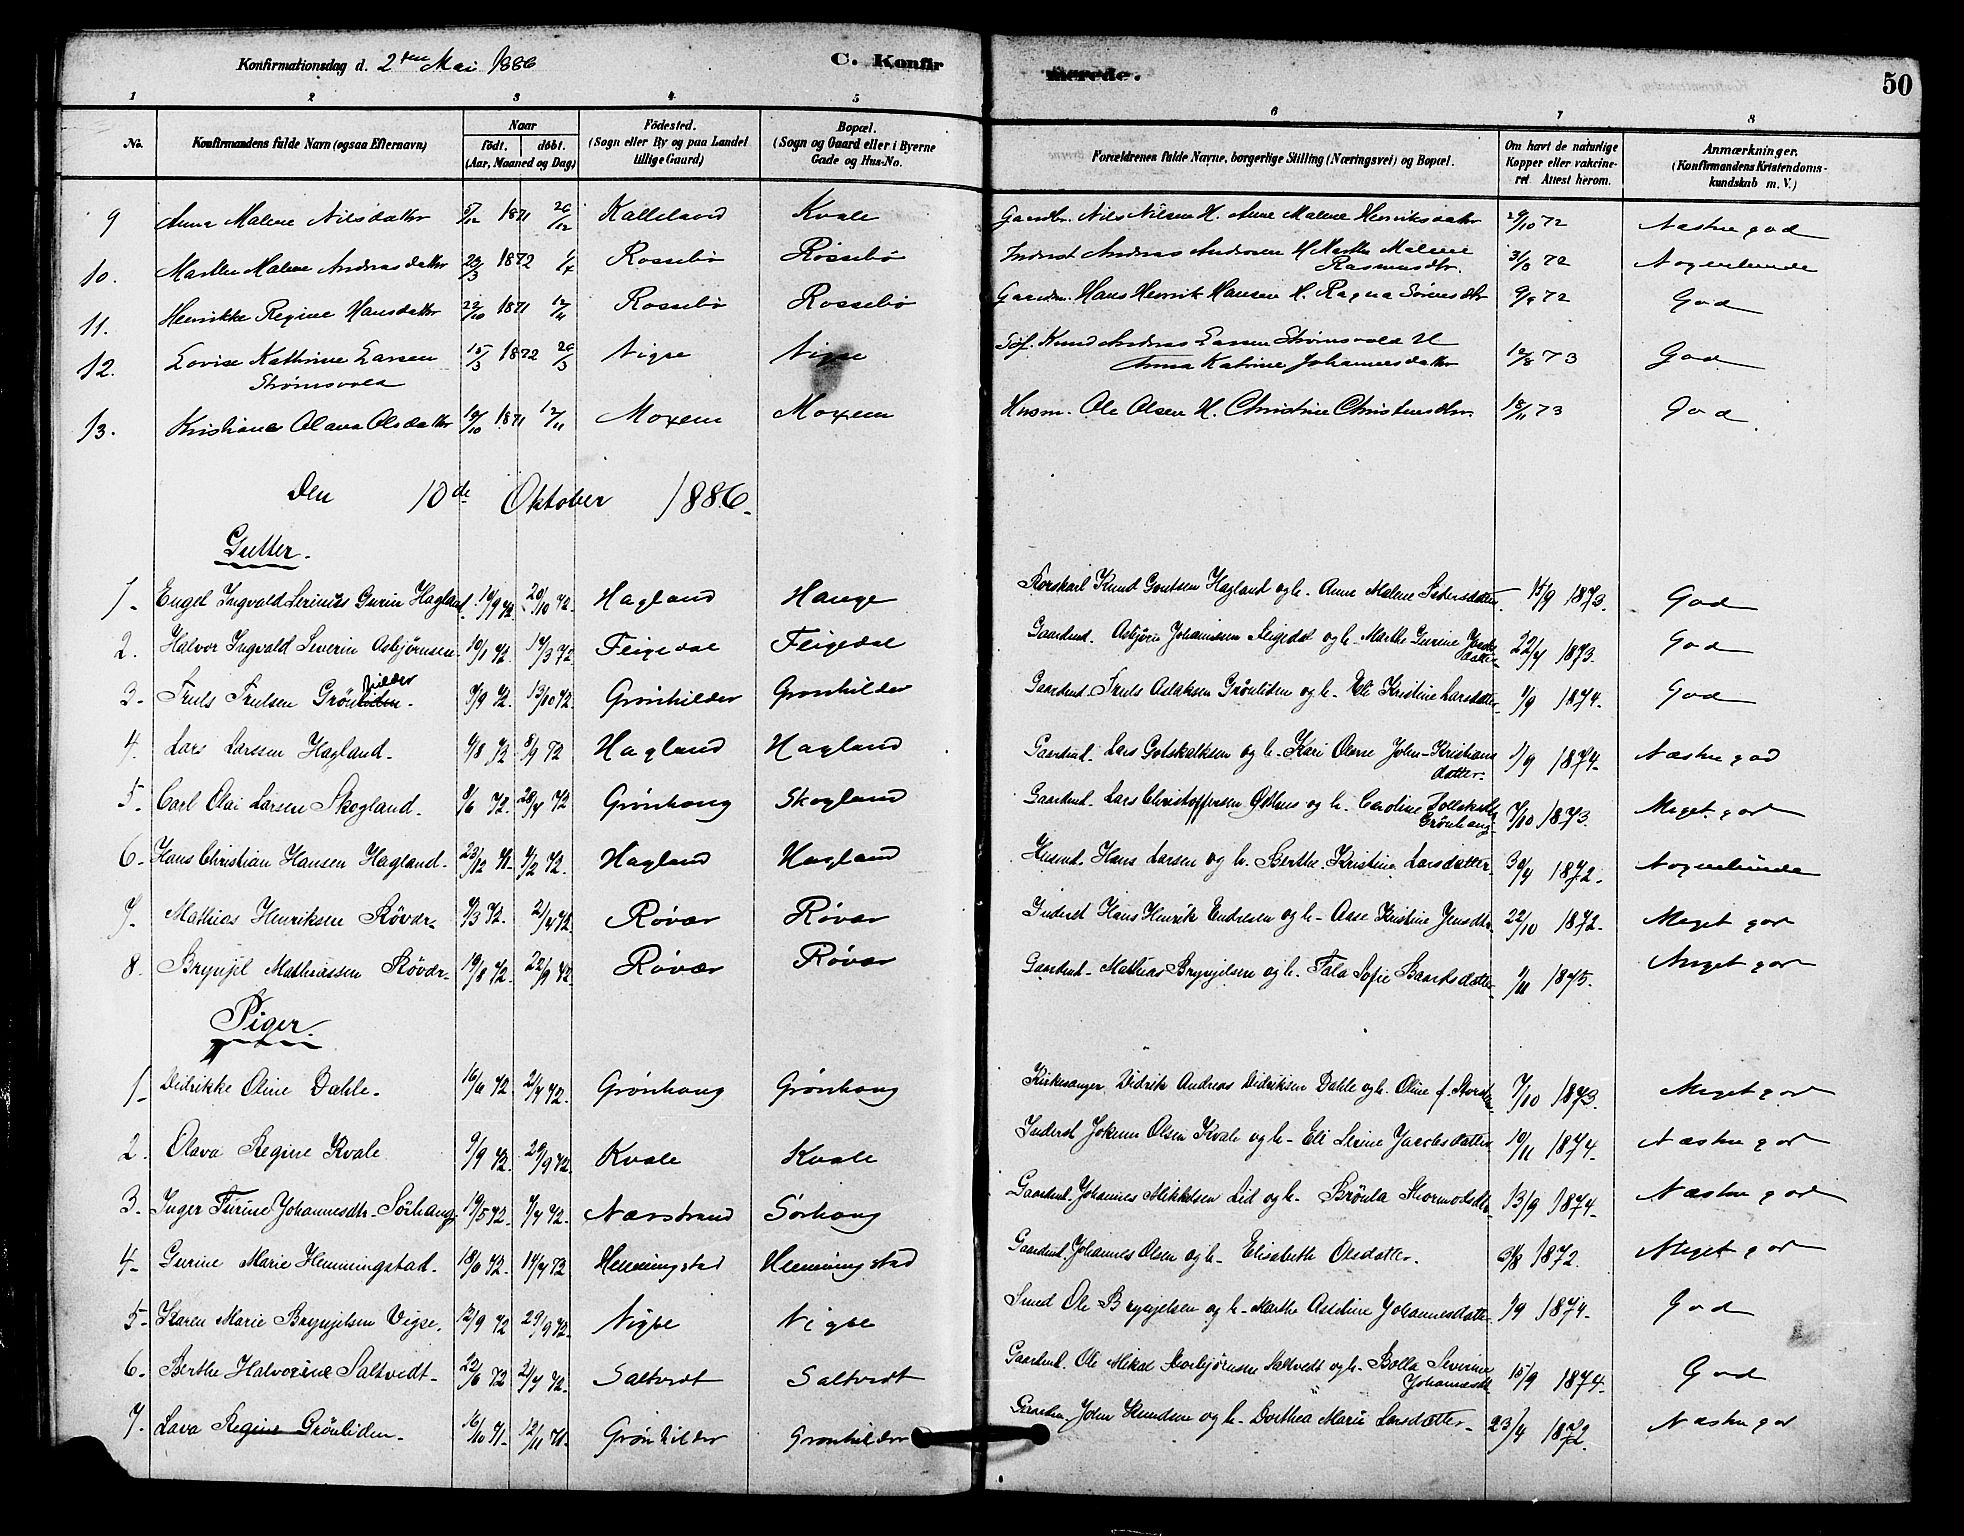 Konfirmationsdag d. 2den Mai 1886 C. Konfirmerede. 50
1 2 3 4 5 6 7 8
No. Konfirmandens fulde Navn (ogsaa Efternavn) Naar født. døbt. (Aar, Maaned og Dag) Fødested. (Sogn eller By og paa Landet tillige Gaard) Bopæl. (Sogn og Gaard eller i Byerne Gade og Hus-No. Forældrenes fulde Navne, borgerlige Stilling (Næringsvei) og Bopæl. Om havt de naturlige Kopper eller vakcineret Attest herom. Anmærkninger. (Konfirmandens Kristendomskundskab m. V.)
9 Anna Malene Nilsdatter 5/12 1871 26/12 Kalleland Kvale Gaardbr. Nils Nilsen H. Anne Malene Henriksdatter 29/10 72 Næsten god
10. Marthe Malene Andreasdatter 23/3 1872 1/4 Rossebø Røssebø Inderst Andreas Andersen H. Marthe Malene Rasmusdtr. 31/8 72 Nogenlunde
11. Henrikke Regine Hansdatter 22/10 1871 12/11 Rossebø Rossebø Gaardm. Hans Henrik Hansen H. Ragna Sørensdtr 9/9 72 God
12. Lovise Kathrine Larsen Strømsvold 15/3 1872 26/3 Vigse Vigse Søf. Knud Andreas Larsen Strømsvold H Anna Katrine Johannesdatter 12/8 73 God
13. Kristiane Olava Olsdatter 19/10 1871 12/11 Moxem Moxem Husm. Ole Olsen H. Christine Christensdtr. 18/11 73 God
Den 10de Oktober 1886.
Gutter.
1. Engel Ingvald Serinius Gurin Hagland 10/9 72. 20/10 72. Hagland Hauge Korskarl Knud Goutsen Hagland og h. Anne Malene Pedersdatter. 15/9 1873. God
2. Halvor Ingvald Severin Asbjørnsen 10/1 72. 17/3 72 Fligedal Fligedal Gaardmd. Asbjørn Johannesen Fligedal og h. Marthe Gurine Jonsdatter 22/4 1873. God
3. Truls Trulsen Grønhilder. 9/9 72. 13/10 72. Grønhilder Grønhilder Gaardmd. Truls Aslaksen Grønliden og h. Eli Kristine Larsdatter 1/9 1874. God
4. Lars Larssen Hagland. 4/8 72 8/9 72 Hagland Hagland Gaardmd. Lars Gotskalksen og h. Kari Olene John-Kristiansdatter. 1/9 1874. Næsten god
5. Carl Olai Larsen Skogland. 8/6 72. 28/7 72 Grønhaug Skogland Gaardmd. Lars Christoffersen og h. Caroline Grønhaug 7/10 1873. Meget god
6. Hans Christian Hansen Hagland. 23/12 71. 4/2 72. Hagland Hagland Husmd. Hans Larsen og h. Berthe Kristine Larsdatter 30/4 1872. Nogenlunde
7. Mathias Henriksen Røvær. 4/3 72. 21/4 72. Røvær Røvær Inderst Hans Henrik Endresen og h. Aase Kristine Jensdtr. 22/10 1872. Meget god
8. Brynjel Mathiassen Røvær. 19/8 72. 22/9 72. Røvær Røvær Gaardmd. Mathias Brynjelsen og h. Tala Sofie Baardsdatter 9/11 1875. Meget god
Piger.
1. Didrikke Oline Dahle. 16/6 72. 21/7 72. Grønhaug Grønhaug Kirkesanger Didrik Andreas Didriksen Dahle og h. Oline f. 7/10 1873. Meget god
2. Olava Regine Kvale 9/9 72. 29/9 72. Kvale Kvale Inderst Jokum Olsen Kvale og h. Eli Serine Jacobsdatter 10/11 1874. Næsten god
3. Inger Turine Johannesdtr. Sørhaug 19/5 72. 7/7 72. Nærstrand Sørhaug Gaardmd. Johannes Mikkelsen Lid og h. Brønla Thormodsdtr. 13/9 1874. Næsten god
4. Gurine Marie Hemmingstad. 18/6 72. 14/7 72 Hemmingstad Hemmingstad Gaardmd. Johannes Olsen og h. Elisabeth Olsdatter. 31/8 1872. Meget god
5. Karen Marie Brynjelsen Vigse. 12/9 72 29/9 72. Vigse Vigse Smed Ole Brynjelsen og h. Marthe Asseline Johannesdatter 1/9 1874. God
6. Berthe Halvorine Saltvedt. 22/6 72 21/7 72. Saltvedt Saltvedt Gaardmd. Ole Mikal Torbjørnsen Saltvedt og h. Bolla Severine Johannesdtr. 15/9 1874. God
7. Lava Regine Grønliden. 16/10 71. 12/11 71. Grønhilder Grønhilder Gaardm. John Knudsen og h. Dorthea Marie Larsdatter. 23/4 1872. Næsten god